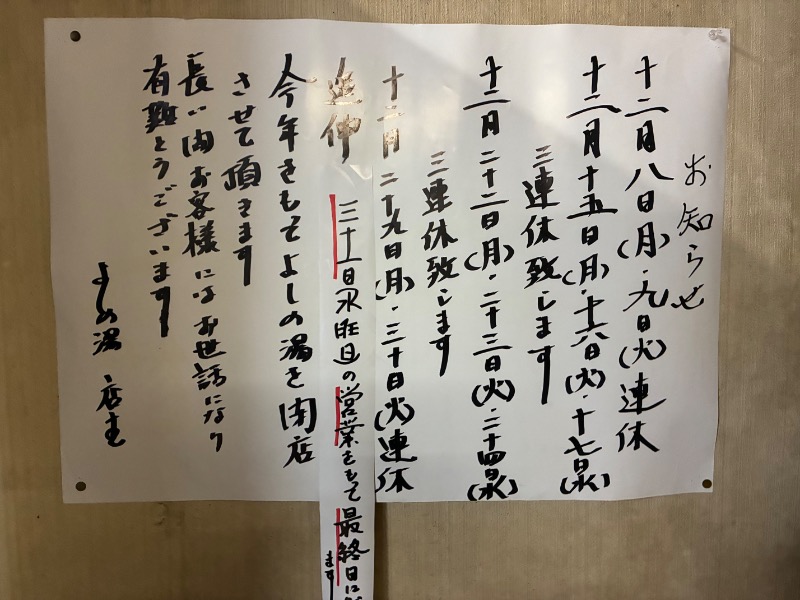 お知らせ
十二月八日(月)・九日(火)連休
十二月十五日(月)・十六日(火)・十七日(水)
三連休致します
十二月二十二日(月)・二十三日(火)・二十四日(水)
三連休致します
十二月二十九日(月)・三十日(火)連休
延伸 三十一日水曜日の営業をもて最終日に
ます
今年をもてよしの湯を閉店
させて頂きます
長い間お客様にはお世話になり
有難とうございます
よしの湯 店主